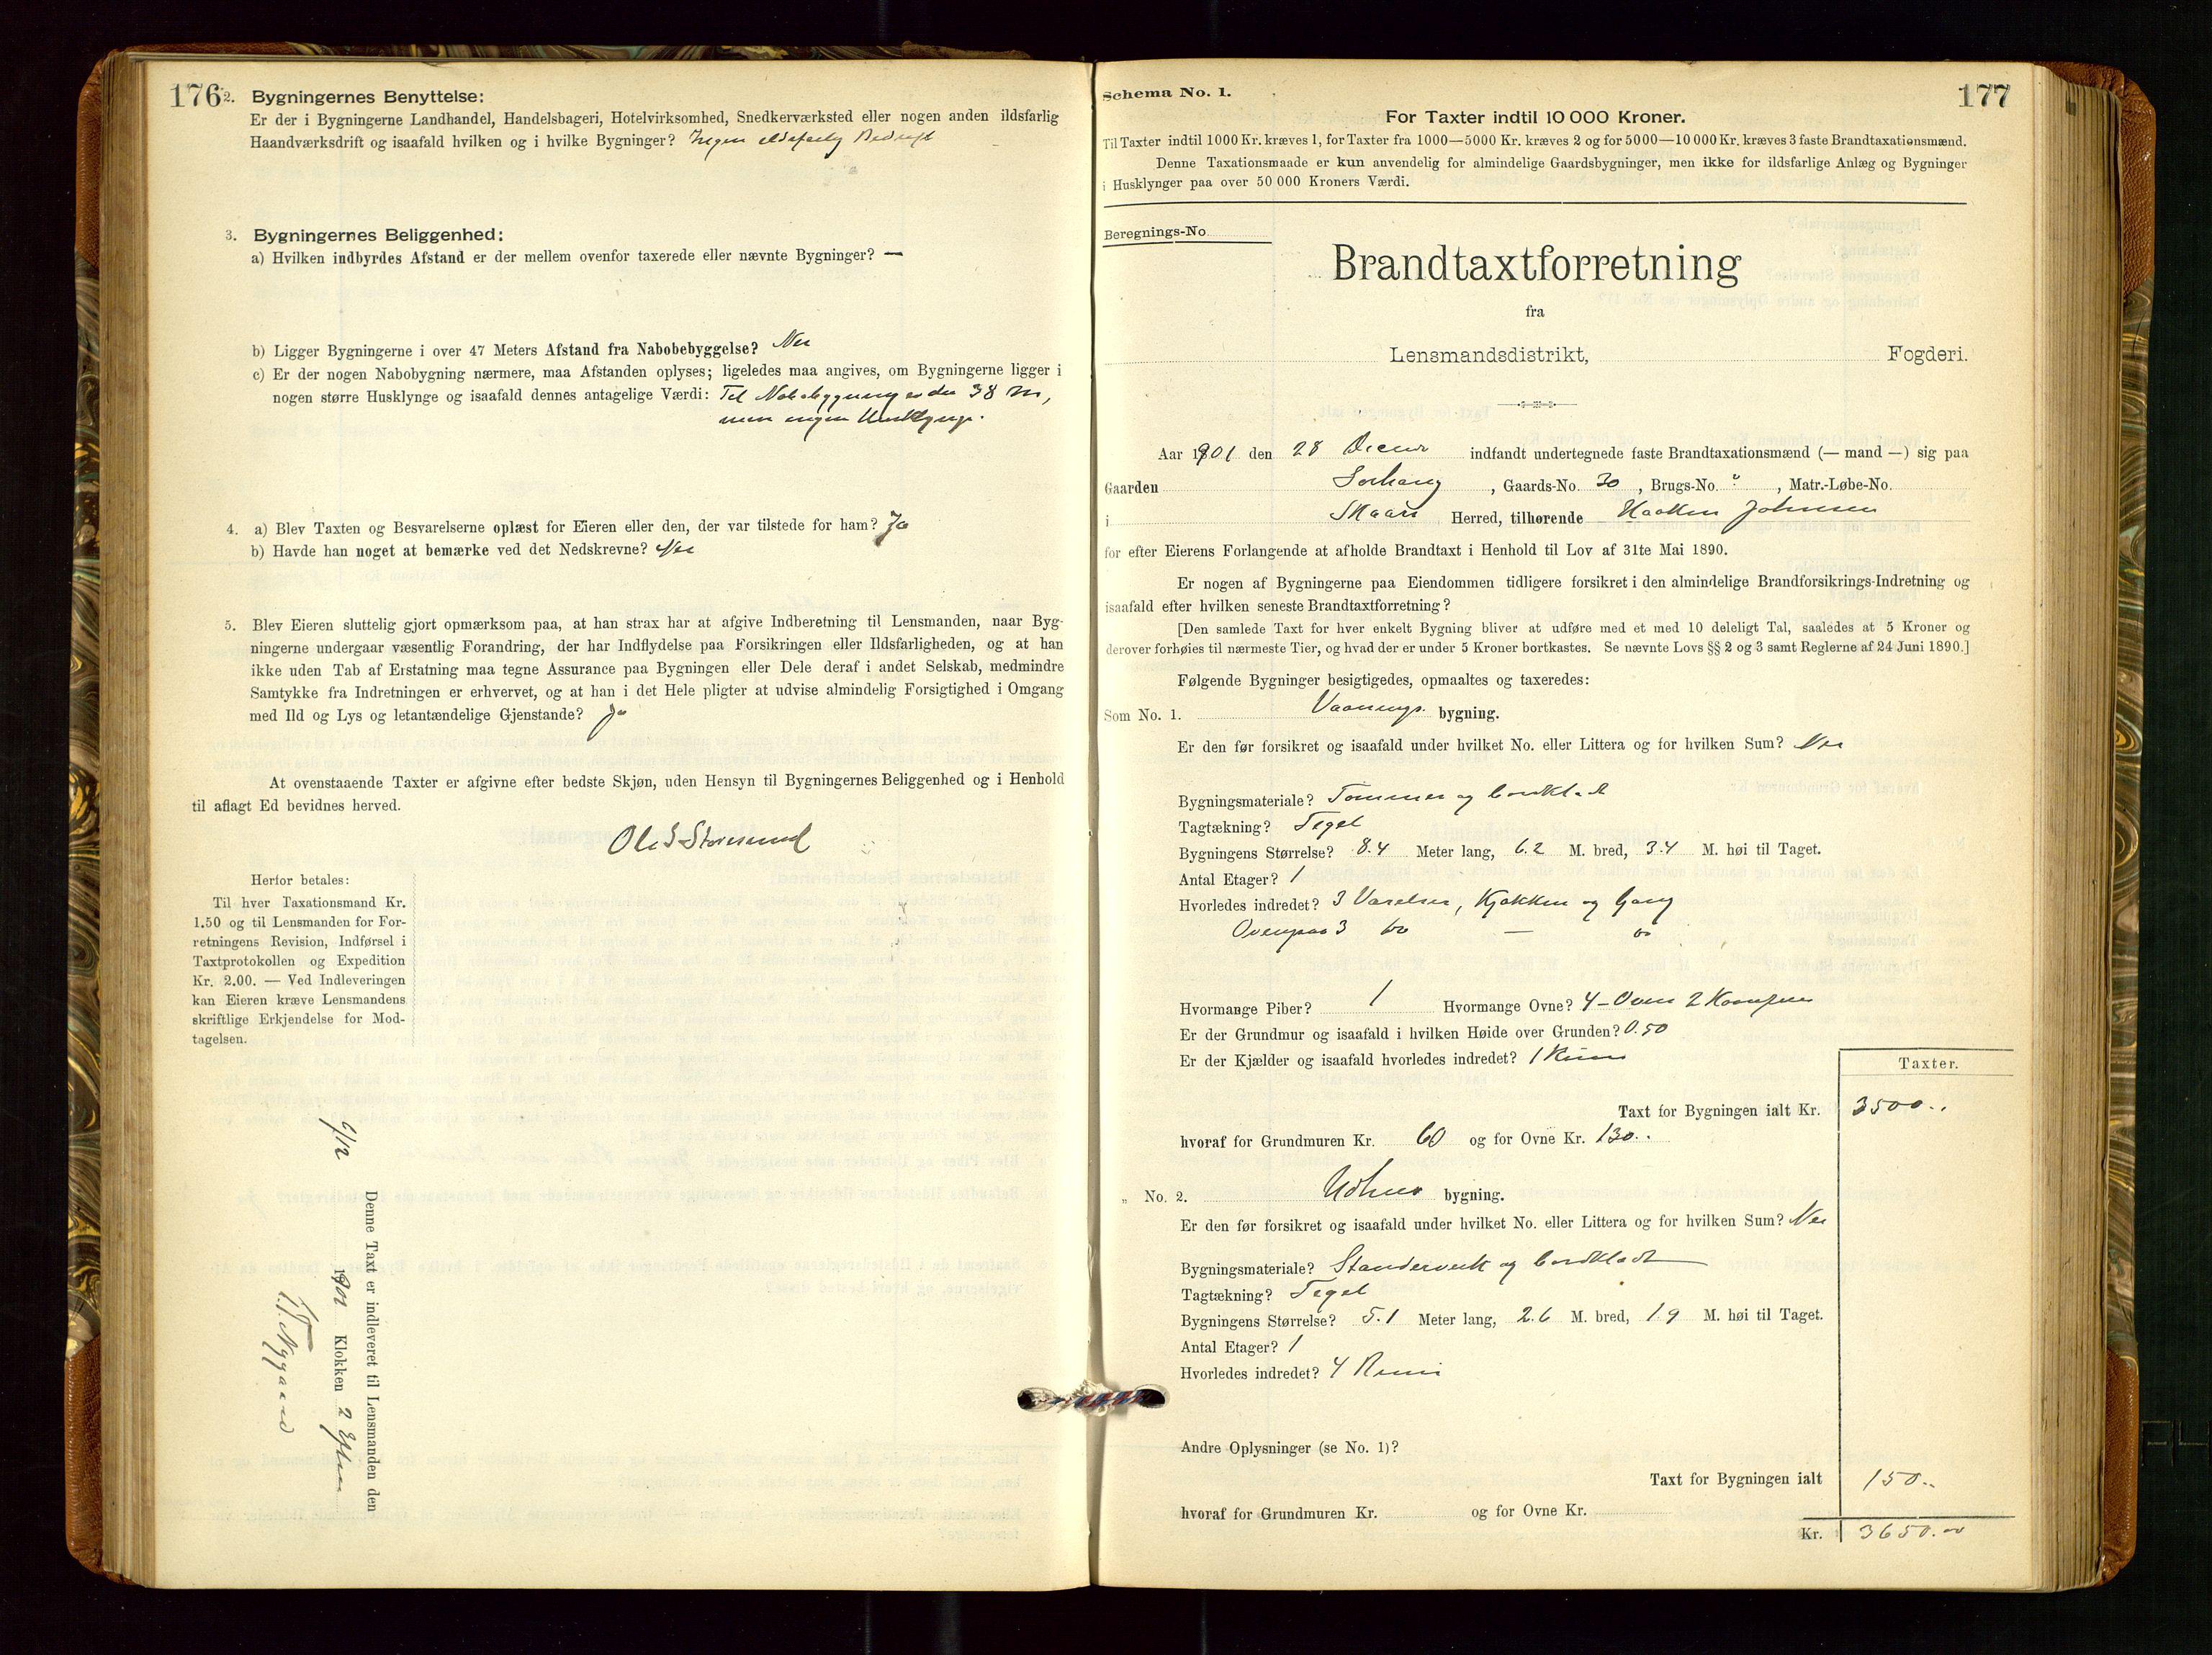 176
2. Bygningernes Benyttelse:
Er der i Bygningerne Landhandel, Handelsbageri, Hotelvirksomhed, Snedkerværksted eller nogen anden ildsfarlig
Haandværksdrift og isaafald hvilken og i hvilke Bygninger? Ingen ildsfarlig Bedrift
3. Bygningernes Beliggenhed:
a) Hvilken indbyrdes Afstand er der mellem ovenfor taxerede eller nævnte Bygninger? —
b) Ligger Bygningerne i over 47 Meters Afstand fra Nabobebyggelse? Nei
c) Er der nogen Nabobygning nærmere, maa Afstanden oplyses; ligeledes maa angives, om Bygningerne ligger i
nogen større Husklynge og isaafald dennes antagelige Værdi: Til Nabobygning er der 38 m,
men ingen Husklynge.
4. a) Blev Taxten og Besvarelserne oplæst for Eieren eller den, der var tilstede for ham? Ja
b) Havde han noget at bemærke ved det Nedskrevne? Nei
5. Blev Eieren sluttelig gjort opmærksom paa, at han strax har at afgive Indberetning til Lensmanden, naar Byg-
ningerne undergaar væsentlig Forandring, der har Indflydelse paa Forsikringen eller Ildsfarligheden, og at han
ikke uden Tab af Erstatning maa tegne Assurance paa Bygningen eller Dele deraf i andet Selskab, medmindre
Samtykke fra Indretningen er erhvervet, og at han i det Hele pligter at udvise almindelig Forsigtighed i Omgang
med Ild og Lys og letantændelige Gjenstande? Ja
At ovenstaaende Taxter er afgivne efter bedste Skjøn, uden Hensyn til Bygningernes Beliggenhed og i Henhold
til aflagt Ed bevidnes herved.
Ole S Storesund
Herfor betales:
Til hver Taxationsmand Kr.
1.50 og til Lensmanden for For-
retningens Revision, Indførsel i
Taxtprotokollen og Expedition
Kr. 2.00. — Ved Indleveringen
kan Eieren kræve Lensmandens
skriftlige Erkjendelse for Mod-
tagelsen.
Denne Taxt er indleveret til Lensmanden den
6/12 1901 Klokken 2 Efterm
Nygaard
177
Schema No. 1.
For Taxter indtil 10 000 Kroner.
Til Taxter indtil 1000 Kr. kræves 1, for Taxter fra 1000—5000 Kr. kræves 2 og for 5000—10 000 Kr. kræves 3 faste Brandtaxationsmænd.
Denne Taxationsmaade er kun anvendelig for almindelige Gaardsbygninger, men ikke for ildsfarlige Anlæg og Bygninger
i Husklynger paa over 50 000 Kroners Værdi.
Beregnings-No
Brandtaxtforretning
fra
Lensmandsdistrikt, Fogderi.
Aar 1901 den 28 indfandt undertegnede faste Brandtaxationsmænd (— mand —) sig paa
Gaarden Sørhaug, Gaards-No. 30, Brugs-No. ", Matr.-Løbe-No.
i Skaare Herred, tilhørende Haakon Johnsen
for efter Eierens Forlangende at afholde Brandtaxt i Henhold til Lov af 31te Mai 1890.
Er nogen af Bygningerne paa Eiendommen tidligere forsikret i den almindelige Brandforsikrings-Indretning og
isaafald efter hvilken seneste Brandtaxtforretning?
[Den samlede Taxt for hver enkelt Bygning bliver at udføre med et med 10 deleligt Tal, saaledes at 5 Kroner og
derover forhøies til nærmeste Tier, og hvad der er under 5 Kroner bortkastes. Se nævnte Lovs §§ 2 og 3 samt Reglerne af 24 Juni 1890.]
Følgende Bygninger besigtigedes, opmaaltes og taxeredes:
Som No. 1. Vaanings bygning.
Er den før forsikret og isaafald under hvilket No. eller Littera og for hvilken Sum? Nei
Bygningsmateriale? Tømmer og bordklædt
Tagtækning? Tegel
Bygningens Størrelse? 8.4 Meter lang, 6.2 M. bred, 3.4 M. høi til Taget.
Antal Etager? 1
Hvorledes indredet? 3 Værelser, Kjøkken og Gang
Ovenpaa 3 do — do
Hvormange Piber? 1 Hvormange Ovne? 4 Ovne 2 Komfurer
Er der Grundmur og isaafald i hvilken Høide over Grunden? 0.50
Er der Kjælder og isaafald hvorledes indredet? 1 Rum
Taxter.
Taxt for Bygningen ialt Kr. 3500..
hvoraf for Grundmuren Kr. 60 og for Ovne Kr. 130..
„ No. 2. Udhus bygning.
Er den før forsikret og isaafald under hvilket No. eller Littera og for hvilken Sum? Nei
Bygningsmateriale? Standerverk og bordklædt
Tagtækning? Tegel
Bygningens Størrelse? 5.1 Meter lang, 2.6 M. bred, 1.9 M. høi til Taget.
Antal Etager? 1
Hvorledes indredet? 4 Rum
Andre Oplysninger (se No. 1)?
Taxt for Bygningen ialt 150..
hvoraf for Grundmuren Kr. og for Ovne Kr.
Kr. 3650.00